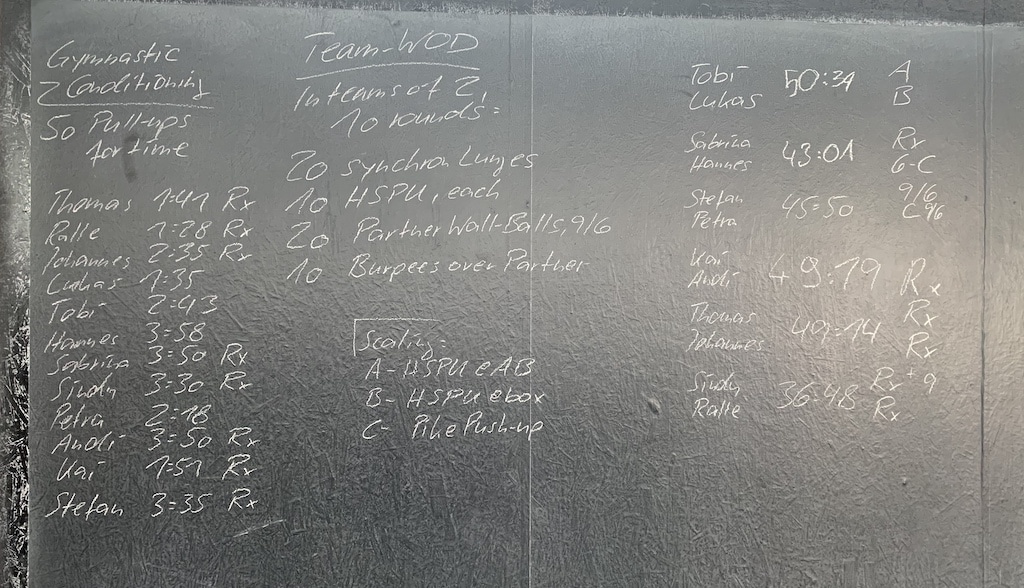 Gymnastic
Conditioning
50 Pull-ups
for time
Thomas 1:41 Rx
Ralle 1:28 Rx
Johannes 2:35 Rx
Lukas 1:35
Tobi 2:43
Hannes 3:58
Sabrina 3:50 Rx
Sindy 3:30 Rx
Petra 2:18
Andi 3:50 Rx
Kai 1:51 Rx
Stefan 3:35 Rx
Team-WOD
In teams of 2,
10 rounds:
20 synchron Lunges
10 HSPU, each
20 Partner Wall-Balls, 9/6
10 Burpees over Partner
Scaling:
A - HSPU e AB
B - HSPU e box
C - Pike Push-up
Tobi 50:34 A
Lukas B
Sabrina 43:01 Rx
Hannes 6-C
Stefan 45:50 9/6
Petra C 9/6
Kai
Andi 49:19 Rx
Thomas 49:14 Rx
Johannes Rx
Sindy 36:48 Rx + 9
Ralle Rx